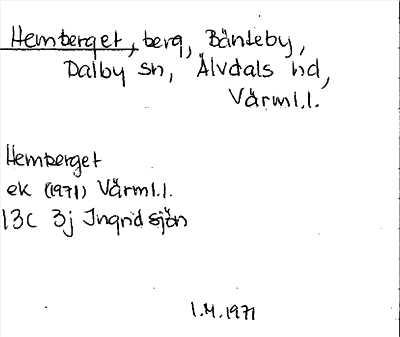 Hemberget, berg, Bänteby,
Dalby sn, Älvdals hd,
Värml.l.
Hemberget
ek (1971) Värml.l.
13C 3j Ingridsjön
I.M. 1971